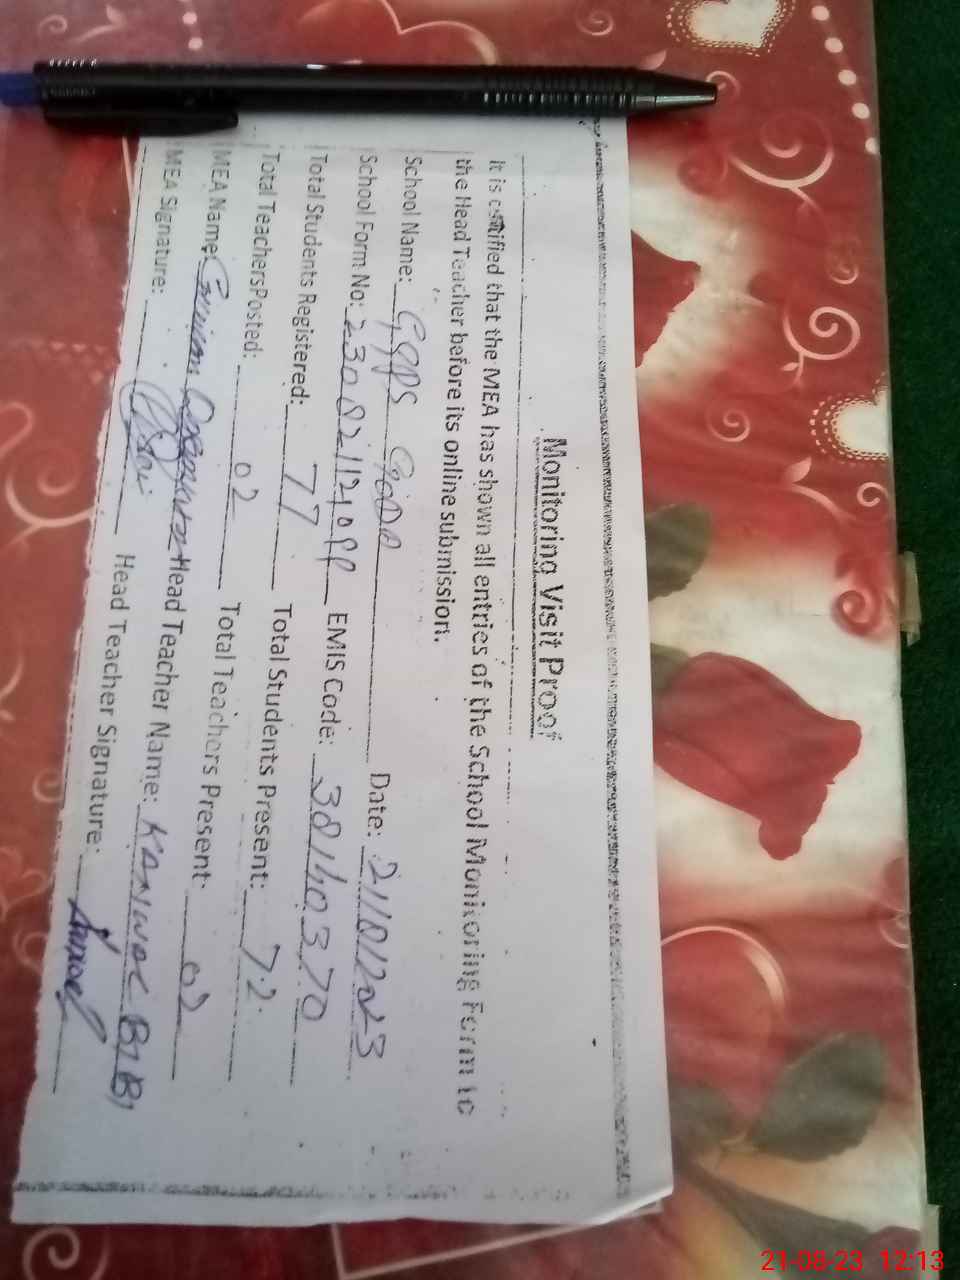 Monitoring Visit Proof
It is certified that the MEA has shown all entries of the School Monitoring Form to
the Head Teacher before its online submission.
School Name: GGPS Date: 21/8/2023
School Form No: EMIS Code: 38140370
Total Students Registered: 77 Total Students Present: 72
Total TeachersPosted: 02 Total Teachers Present: 02
MEA Name: Head Teacher Name: KANWAL BIBI
MEA Signature: Head Teacher Signature:
21-08-23 12:13